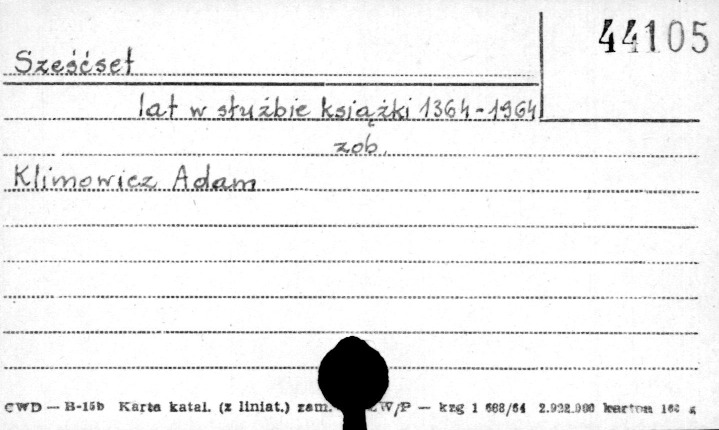 44105
Sześćset
lat w służbie książki 1364-1964
zob.
Klimowicz Adam
CWD — B-15b Karta katal. (z liniat.) zam. W/P — kzg 1 688/64 2.922.000 karton